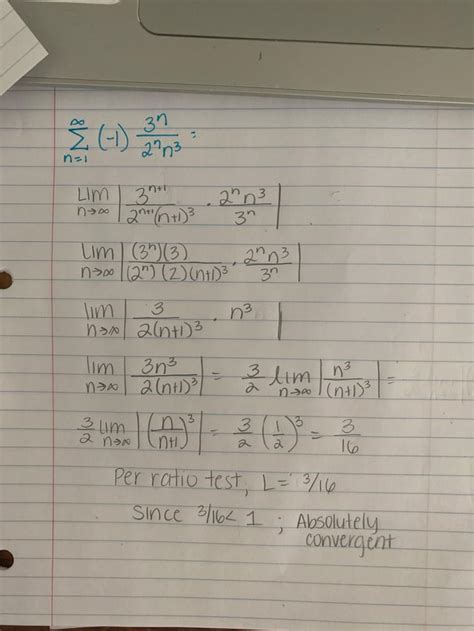 ∞
∑ (-1) 3ⁿ / 2ⁿn³ =
n=1
lim n→∞ | 3ⁿ⁺¹ / 2ⁿ⁺¹(n+1)³ · 2ⁿn³ / 3ⁿ |
lim n→∞ | (3ⁿ)(3) / (2ⁿ)(2)(n+1)³ · 2ⁿn³ / 3ⁿ |
lim n→∞ | 3 / 2(n+1)³ · n³ |
lim n→∞ | 3n³ / 2(n+1)³ | = 3/2 lim n→∞ | n³ / (n+1)³ | =
3/2 lim n→∞ | (n / n+1)³ | = 3/2 (1/2)³ = 3/16
Per ratio test, L = 3/16
Since 3/16 < 1 ; Absolutely
convergent